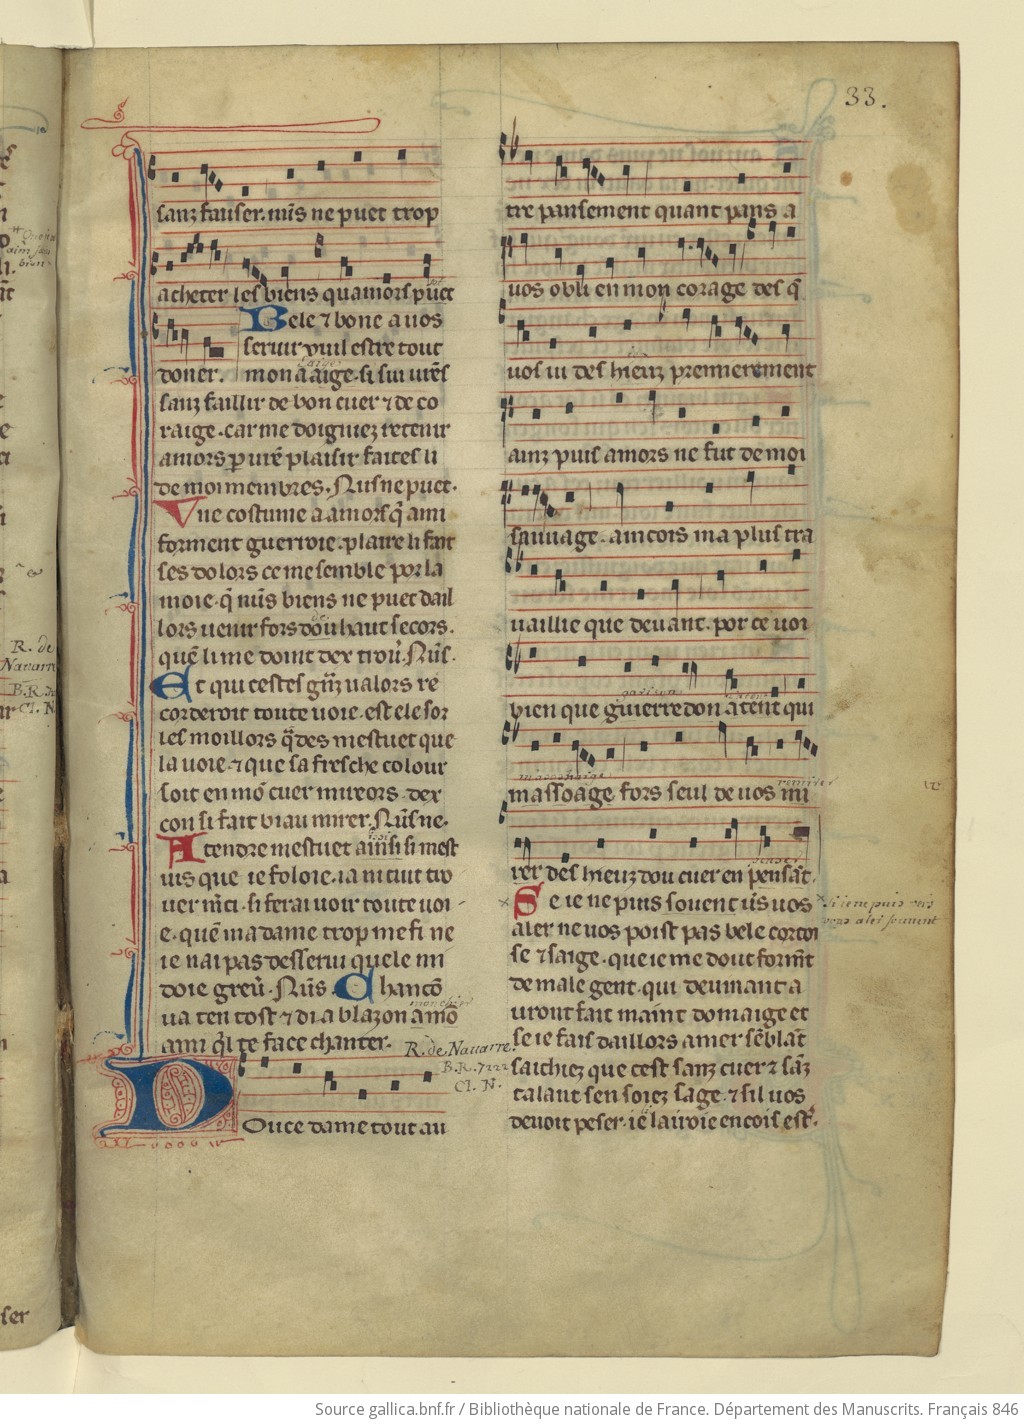 33.
sanz fauser. nus ne puet trop
acheter les biens quamors puet
Bele ⁊ bone a uos
seruir vuil estre tout
doner. mon aaige. si sui ures
sanz faillir de bon cuer ⁊ de co
raige. car me doigniez retenir
amors p ure plaisir faites li
de moi menbres. Nus ne puet.
Vne costume a amors q̄ ami
forment guerroie. plaire li fait
ses dolors ce me semble por la
moie. q̄ nus biens ne puet dail
lors uenir fors dou haut secors.
que li me doint dex trou. Nus.
Et qui cestes granz ualors re
corderoit toute uoie. est ele sor
les moillors q̄ des mestuet que
la uoie. ⁊ que sa fresche colour
soit en mō cuer mireors. dex
con si fait biau mirer. Nus ne.
Atendre mestuet ainsi si mest
uis que ie foloie. ia ni cuit tro
uer mci. si ferai uoir toute uoi
e. que ma dame trop me fi ne
ie nai pas desserui quele mi
doie greu. Nus. Chancō
ua ten tost ⁊ di a blazon amō
ami q̄l te face chanter.
R. de Navarre.
B.R. 7222
Cl. N.
Douce dame tout au
tre pansement quant pans a
uos obli en mon corage des q̄
uos ui des hieuz premierement
ainz puis amors ne fut de moi
sauuage. aincois ma plus tra
uaillie que deuant. por ce uoi
bien que guierredon atent qui
massoage fors seul de uos mi
rer des hieuz dou cuer en pensāt.
Se ie ne puis souent us uos
aler ne uos poist pas bele cortoi
se ⁊ saige. que ie me dout formt
de male gent. qui deuinant a
uront fait maint domaige et
se ie fais daillors amer seblāt
saichiez que cest sanz cuer ⁊ sāz
talant sen soiez sage. ⁊ sil uos
deuoit peser. ie lairoie encois est.
si ie ne puis vers
vous aler souuent
R. de
Navarre
B.R.
Cl. N
ser
Source gallica.bnf.fr / Bibliothèque nationale de France. Département des Manuscrits. Français 846